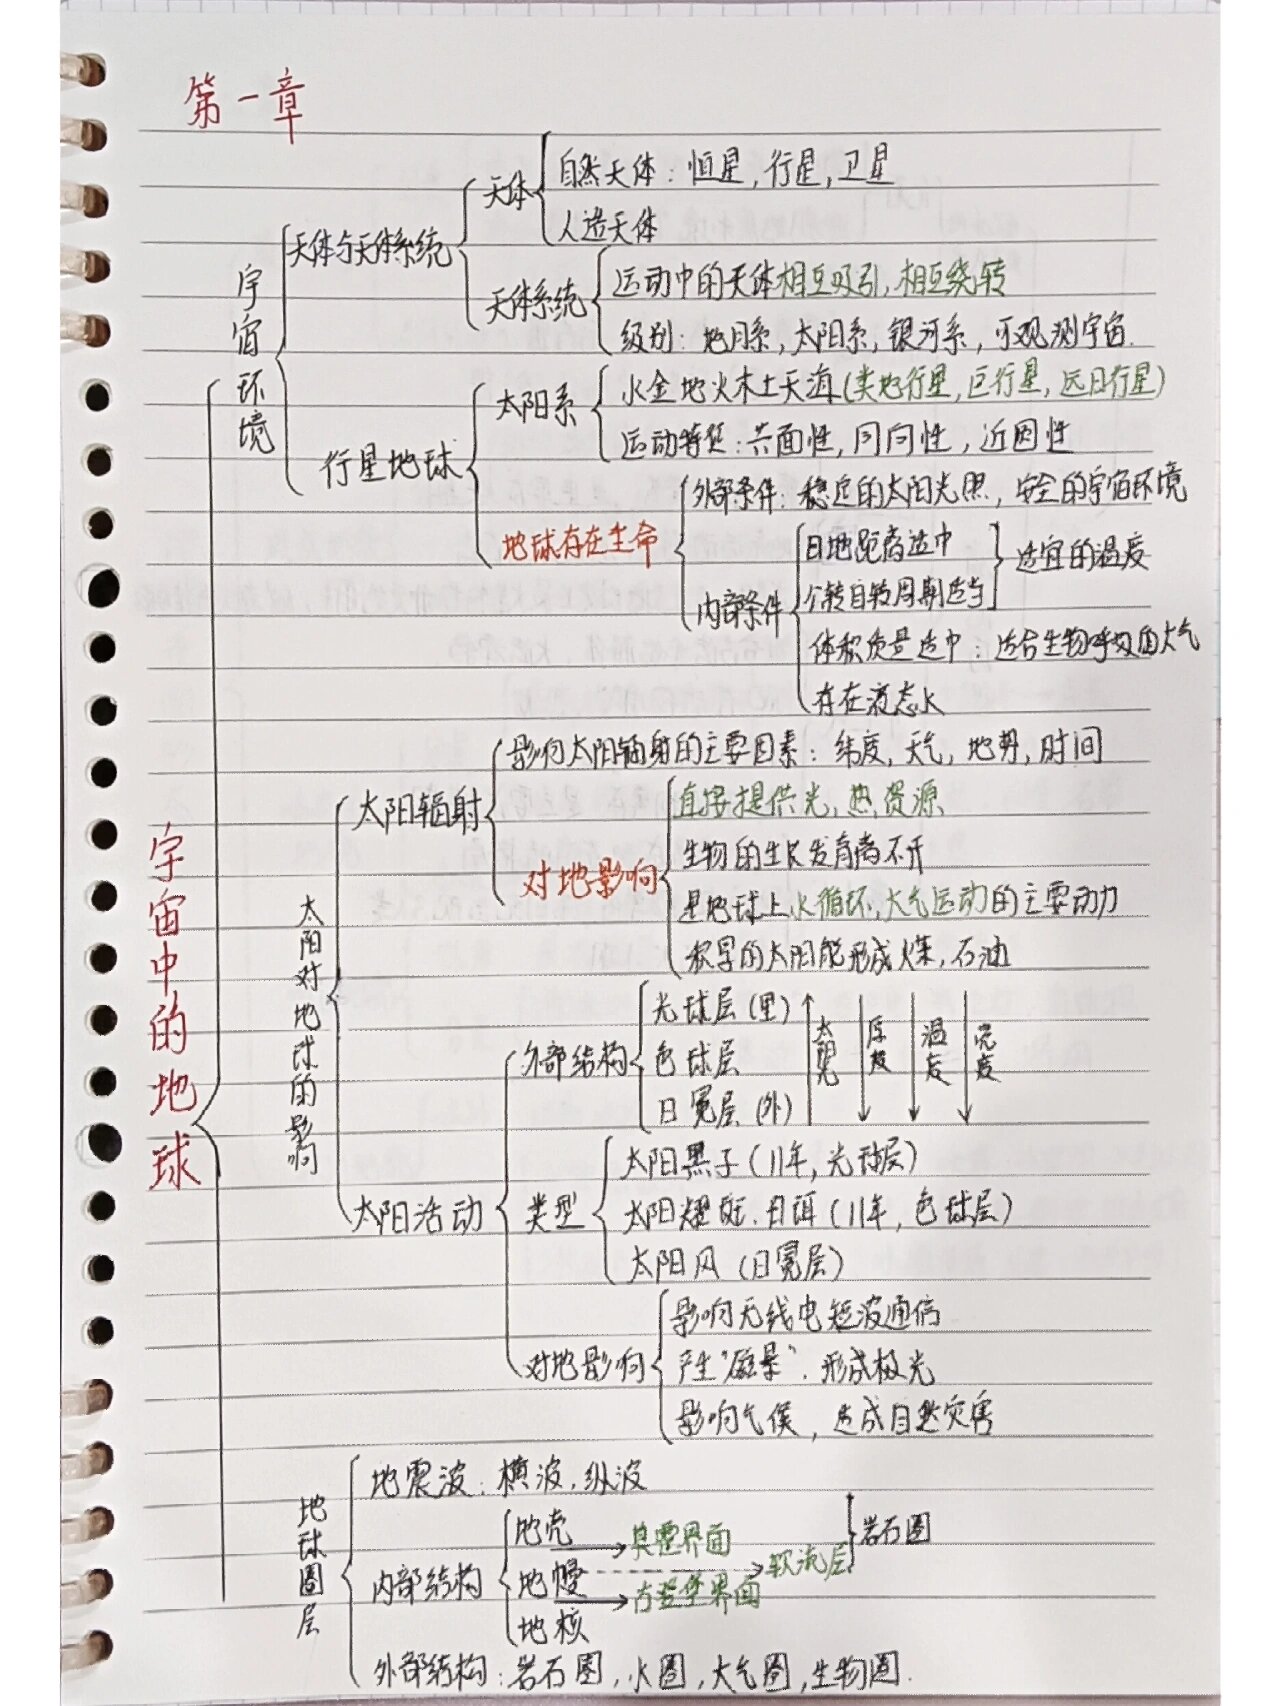 第一章
宇宙中的地球
宇宙环境
天体与天体系统
天体
自然天体：恒星，行星，卫星
人造天体
天体系统
运动中的天体相互吸引，相互绕转
级别：地月系，太阳系，银河系，可观测宇宙.
行星地球
太阳系
水金地火木土天海(类地行星，巨行星，远日行星)
运动特征：共面性，同向性，近圆性
地球存在生命
外部条件：稳定的太阳光照，安全的宇宙环境
内部条件
日地距离适中
自转周期适当
适宜的温度
体积质量适中：适合生物呼吸的大气
存在液态水
太阳对地球的影响
太阳辐射
影响太阳辐射的主要因素：纬度，天气，地势，时间
对地影响
直接提供光，热资源
生物的生长发育离不开
是地球上水循环，大气运动的主要动力
积累的太阳能形成煤，石油
太阳活动
外部结构
光球层(里)
色球层
日冕层(外)
厚度
温度
亮度
类型
太阳黑子(11年，光球层)
太阳耀斑．日珥(11年，色球层)
太阳风(日冕层)
对地影响
影响无线电短波通信
产生"磁暴"．形成极光
影响气候，造成自然灾害
地球圈层
地震波：横波，纵波
内部结构
地壳
莫霍界面
地幔
软流层
岩石圈
古登堡界面
地核
外部结构：岩石圈，水圈，大气圈，生物圈.